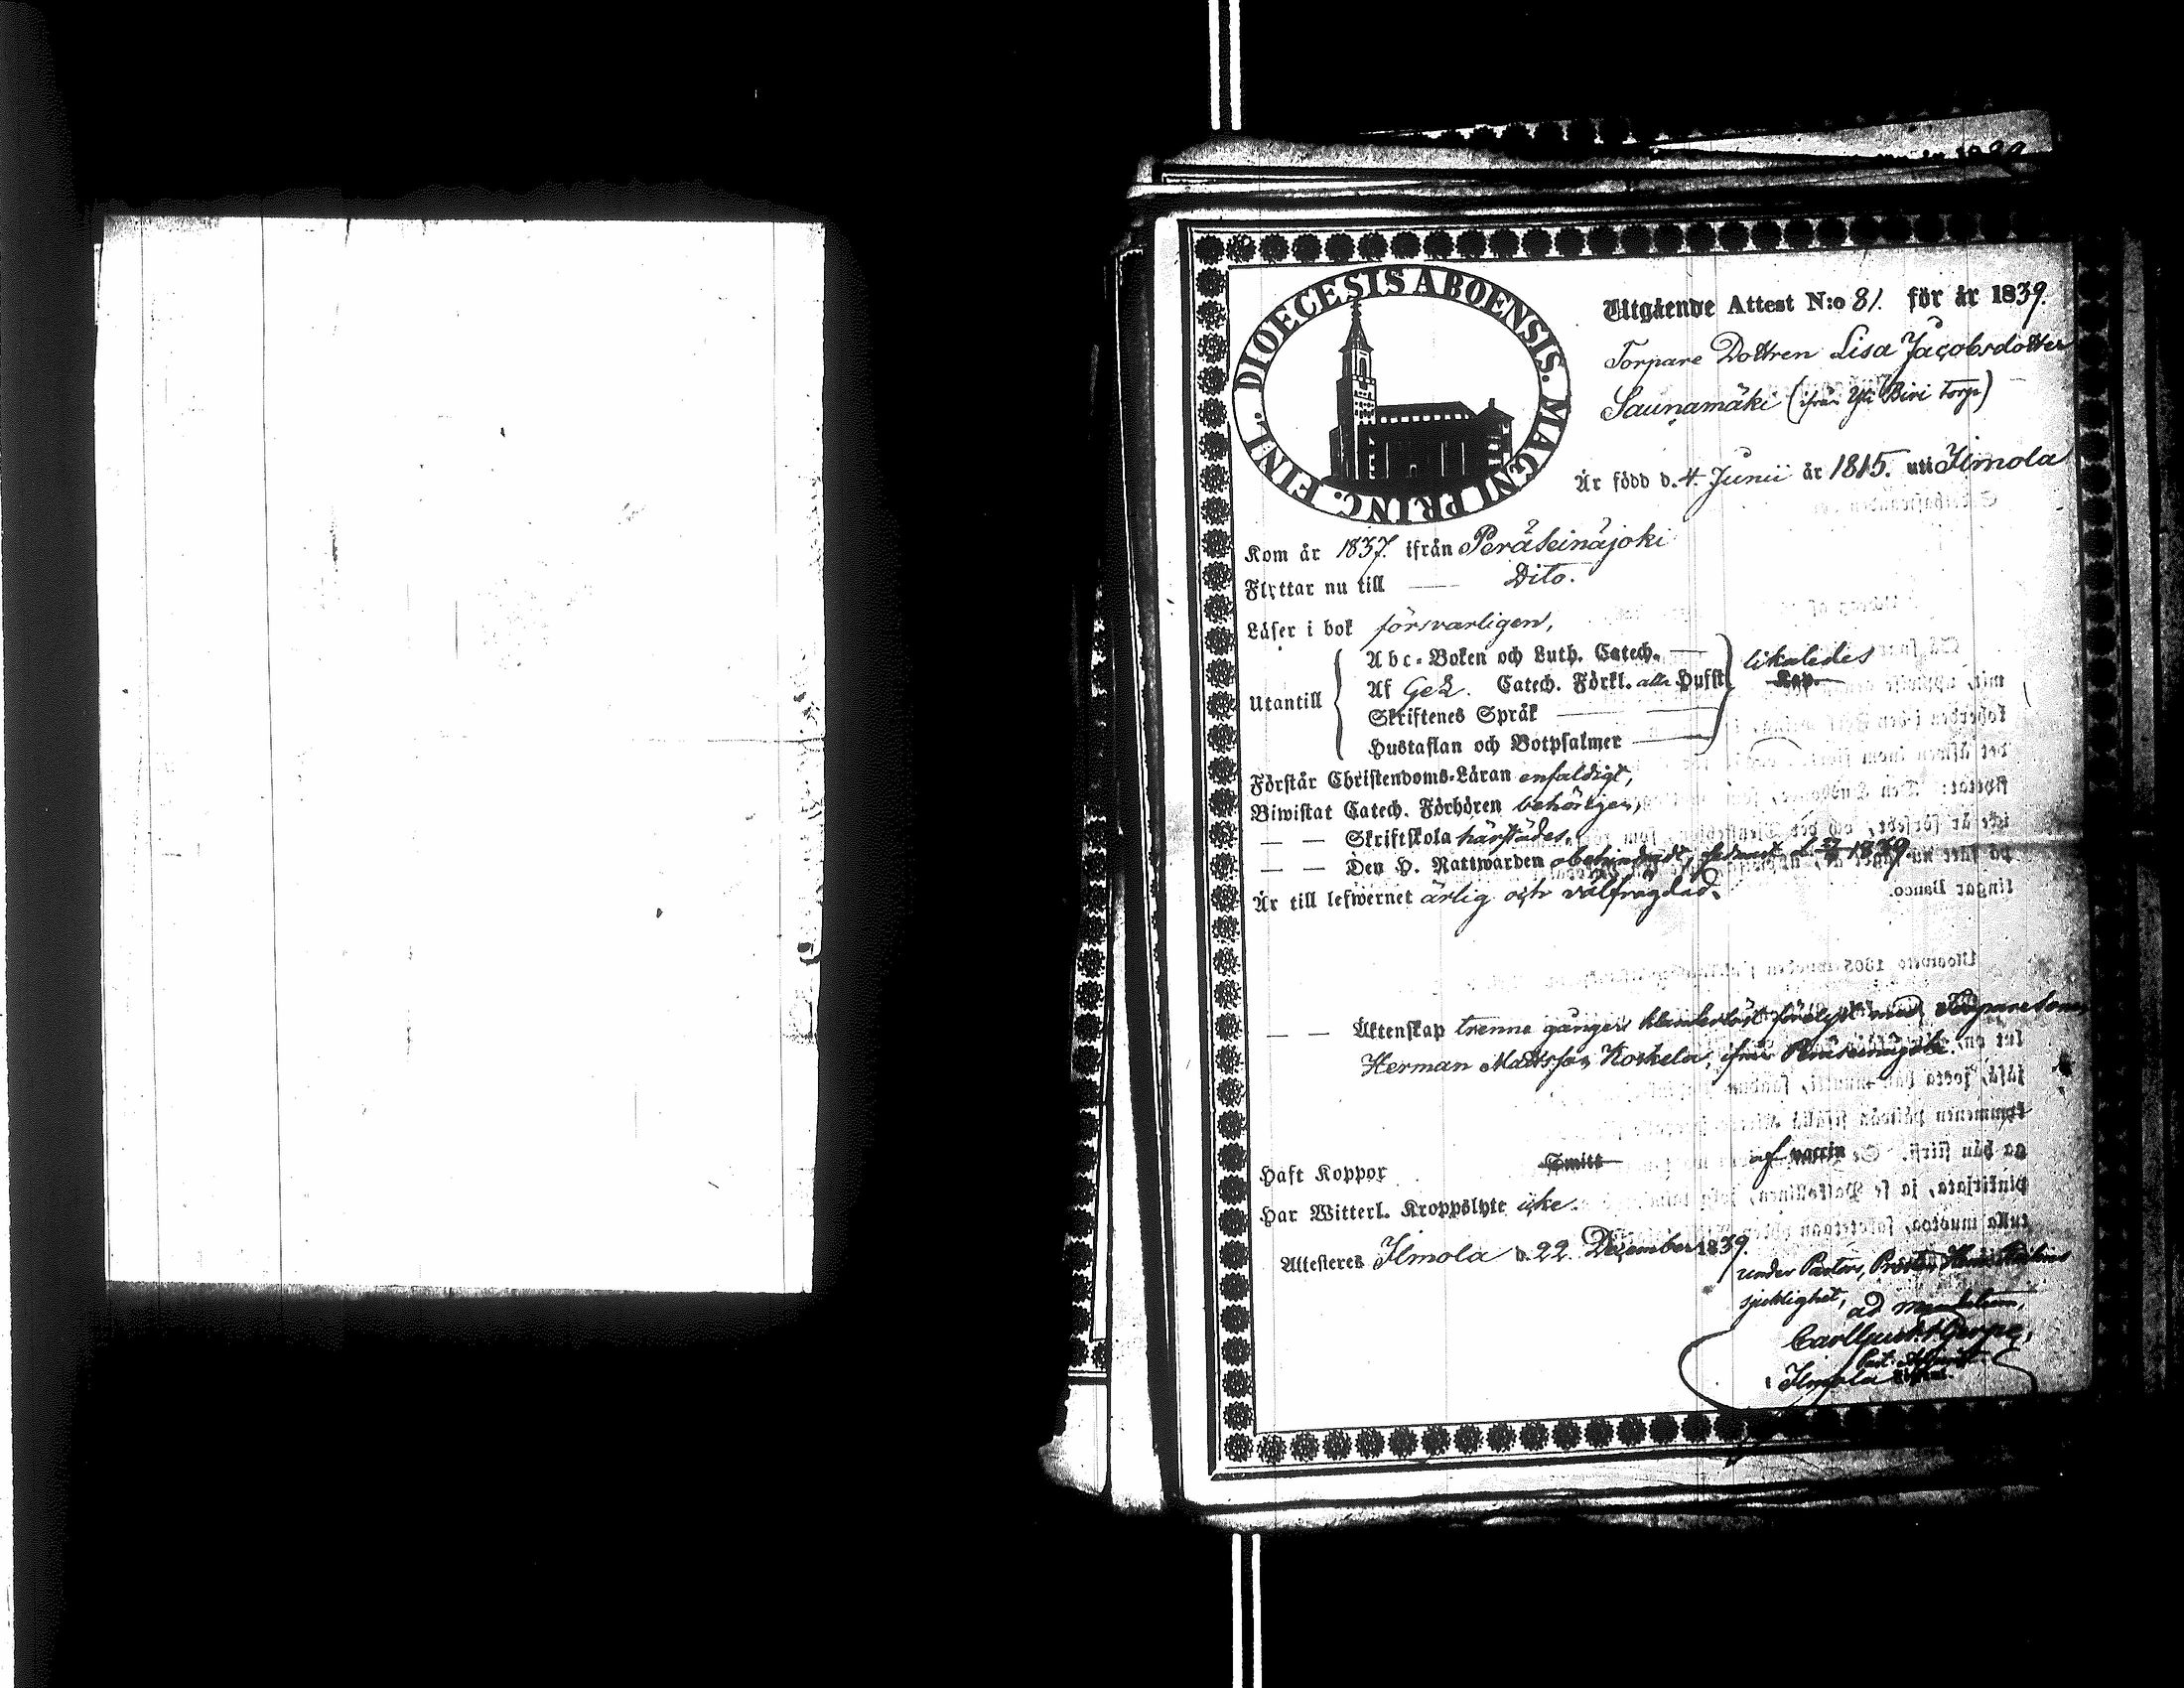 DIOECESIS ABOENSIS. MAGNI PRINC. FINL.
Utgående Attest N:o 81. för år 1839.
Torpare Dottren Lisa Jacobsdotter
Saunamäki (ifrån Yli Biri torp)
Är född d. 4. Junii år 1815. uti Ilmola
Kom år 1837. ifrån Peräseinäjoki
Flyttar nu till — Dito.
Läser i bok försvarligen,
Utantill
Abc-Boken och Luth. Catech. — likaledes
Af G och L. Catech. Förkl. alla Hufst. Kap.
Skriftenes Språk —
Hustaflan och Botpsalmer —
Förstår Christendoms-Läran enfaldigt,
Biwistat Catech. Förhören behörigen,
— — Skriftskola härstädes,
— — Den H. Nattwarden obehindradt, senast d. 1839.
Är till lefwernet ärlig och välfrägdad.
— — Äktenskap trenne gånger klanderlöst förelyst med Torparesonen
Herman Mattsson Koskela, ifrån Peräseinäjoki.
Haft Koppor Smitt af vaccin
Har Witterl. Kroppslyte icke.
Attesteres Ilmola d. 22. December 1839.
under Pastors, Prosten
sjuklighet, ad mandatum,
Carl Gust.
i Ilmola